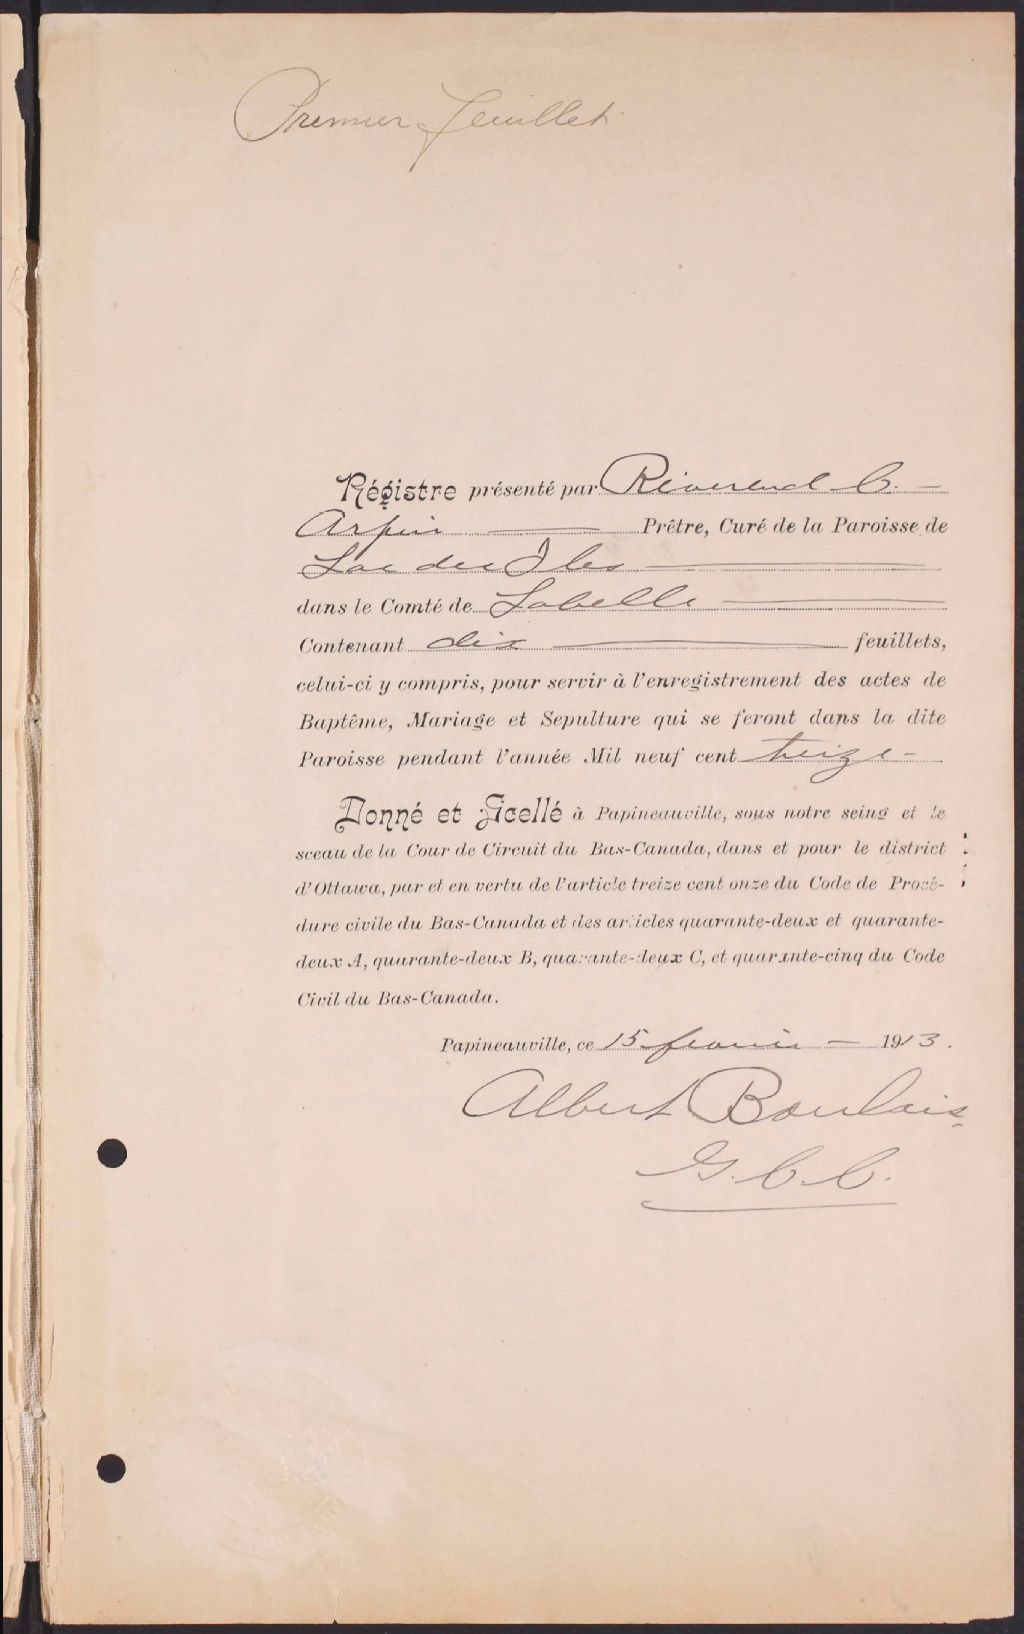 Premier feuillet
Régistre présenté par Révérend C. —
Arpin — Prêtre, Curé de la Paroisse de
Lac des Iles —
dans le Comté de Labelle —
Contenant dix — feuillets,
celui-ci y compris, pour servir à l'enregistrement des actes de
Baptême, Mariage et Sepulture qui se feront dans la dite
Paroisse pendant l'année Mil neuf cent treize —
Donné et Scellé à Papineauville, sous notre seing et le
sceau de la Cour de Circuit du Bas-Canada, dans et pour le district
d'Ottawa, par et en vertu de l'article treize cent onze du Code de Procé-
dure civile du Bas-Canada et des articles quarante-deux et quarante-
deux A, quarante-deux B, quarante-deux C, et quarante-cinq du Code
Civil du Bas-Canada.
Papineauville, ce 15 fevrier — 1913.
Albert Boulais,
G. C. C.